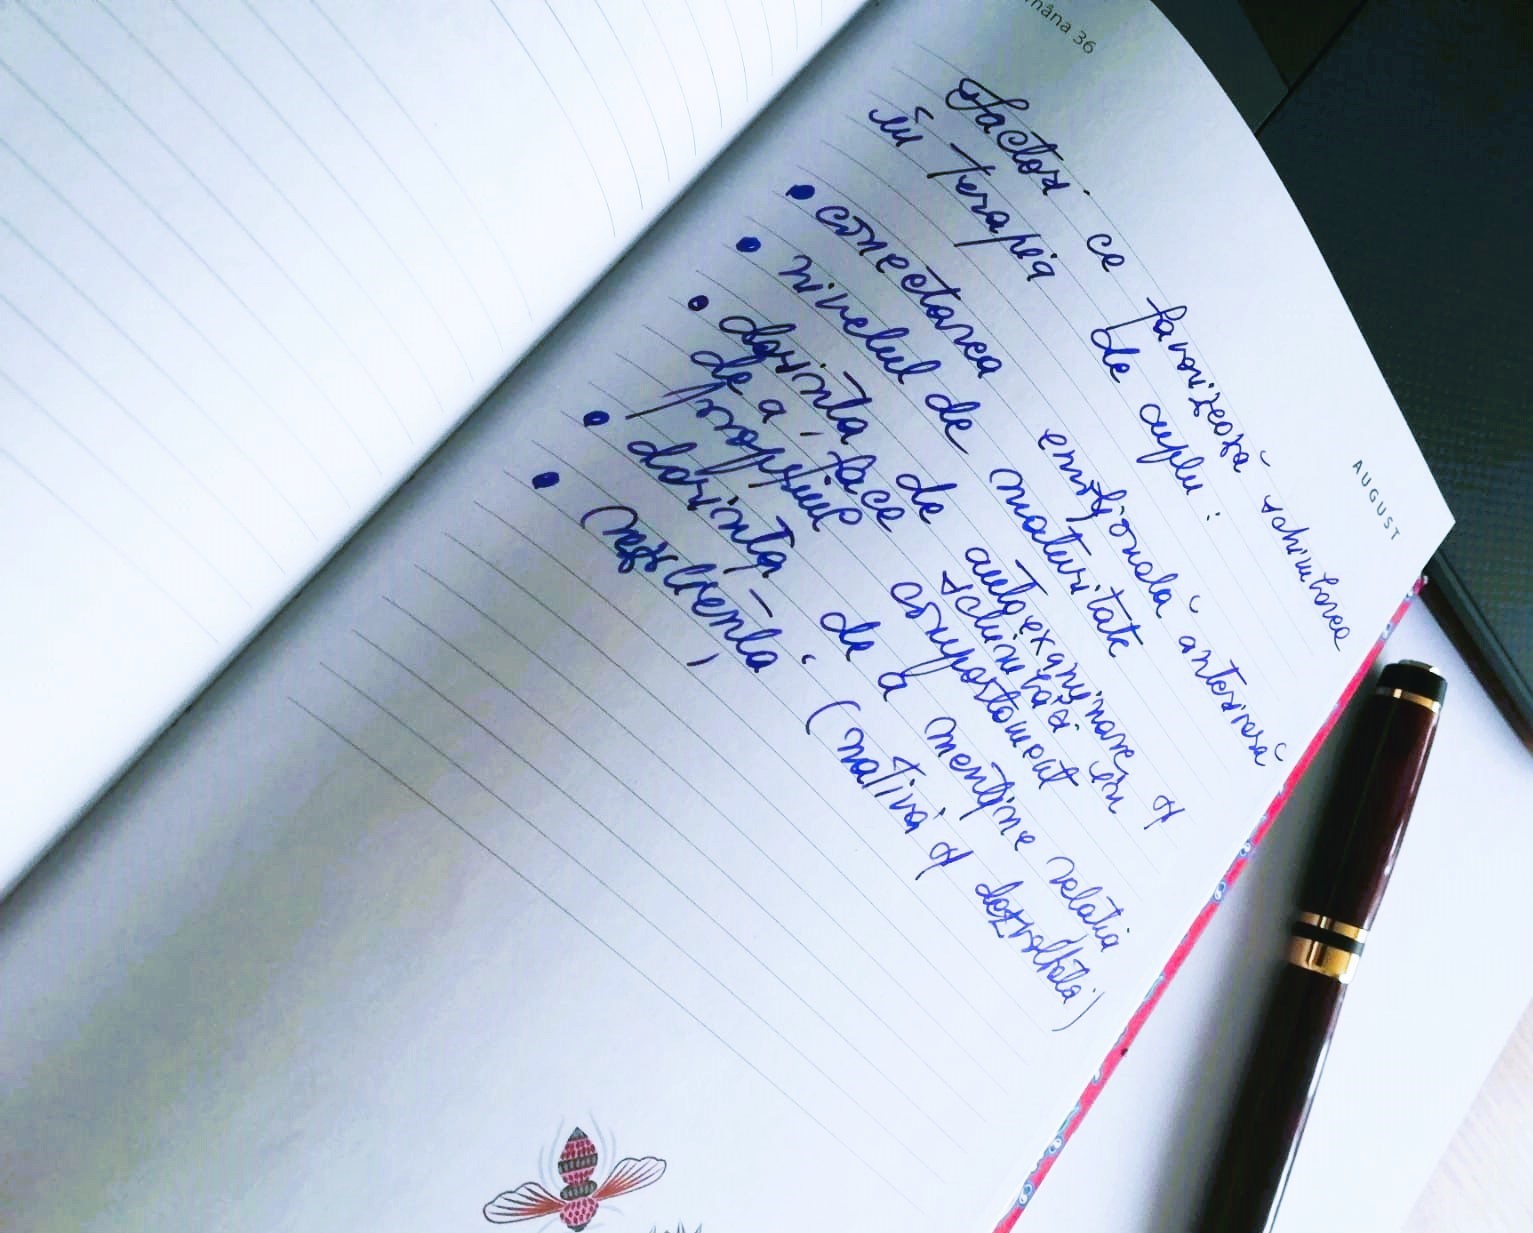 mâna 36
AUGUST
Factori ce favorizează schimbarea
în terapia de cuplu:
• conectarea emoțională anterioară
• nivelul de maturitate
• dorința de autoexaminare și
de a face schimbări în
propriul comportament
• dorința de a menține relația
• reziliența (nativă și dezvoltată)